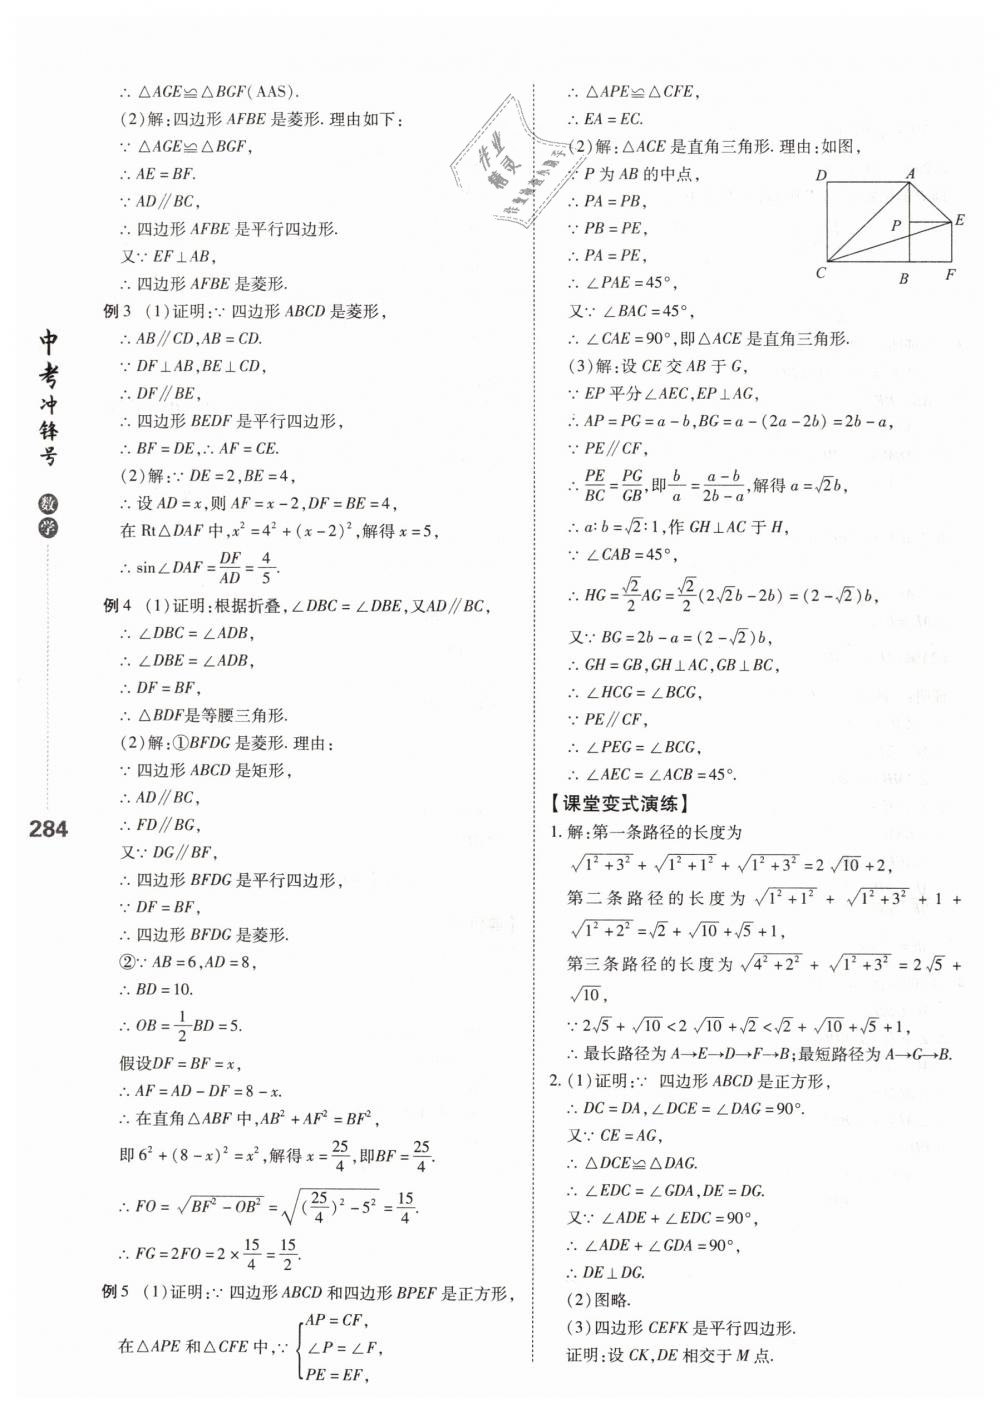 ∴ △AGE≌△BGF(AAS).
(2)解:四边形 AFBE 是菱形. 理由如下:
∵ △AGE≌△BGF,
∴ AE = BF.
∵ AD∥BC,
∴ 四边形 AFBE 是平行四边形.
又∵ EF⊥AB,
∴ 四边形 AFBE 是菱形.
例3 (1)证明:∵ 四边形 ABCD 是菱形,
∴ AB∥CD,AB = CD.
∵ DF⊥AB,BE⊥CD,
∴ DF∥BE,
∴ 四边形 BEDF 是平行四边形,
∴ BF = DE,∴ AF = CE.
(2)解:∵ DE = 2,BE = 4,
∴ 设 AD = x,则 AF = x - 2,DF = BE = 4,
在 Rt△DAF 中,x² = 4² + (x - 2)²,解得 x = 5,
∴ sin∠DAF = DF/AD = 4/5.
例4 (1)证明:根据折叠,∠DBC = ∠DBE,又AD∥BC,
∴ ∠DBC = ∠ADB,
∴ ∠DBE = ∠ADB,
∴ DF = BF,
∴ △BDF是等腰三角形.
(2)解:①BFDG 是菱形. 理由:
∵ 四边形 ABCD 是矩形,
∴ AD∥BC,
∴ FD∥BG,
又∵ DG∥BF,
∴ 四边形 BFDG 是平行四边形,
∵ DF = BF,
∴ 四边形 BFDG 是菱形.
②∵ AB = 6,AD = 8,
∴ BD = 10.
∴ OB = 1/2 BD = 5.
假设DF = BF = x,
∴ AF = AD - DF = 8 - x.
∴ 在直角△ABF 中,AB² + AF² = BF²,
即 6² + (8 - x)² = x²,解得 x = 25/4,即BF = 25/4.
∴ FO = √(BF² - OB²) = √((25/4)² - 5²) = 15/4.
∴ FG = 2FO = 2 × 15/4 = 15/2.
例5 (1)证明:∵ 四边形 ABCD 和四边形 BPEF 是正方形,
在△APE 和△CFE 中,∵ { AP = CF,
∠P = ∠F,
PE = EF,
∴ △APE≌△CFE,
∴ EA = EC.
(2)解:△ACE 是直角三角形. 理由:如图,
∵ P 为 AB 的中点,
∴ PA = PB,
∵ PB = PE,
∴ PA = PE,
∴ ∠PAE = 45°,
又∵ ∠BAC = 45°,
∴ ∠CAE = 90°,即△ACE 是直角三角形.
D A
P E
C B F
(3)解:设 CE 交 AB 于 G,
∵ EP 平分∠AEC,EP⊥AG,
∴ AP = PG = a - b,BG = a - (2a - 2b) = 2b - a,
∵ PE∥CF,
∴ PE/BC = PG/GB,即 b/a = (a - b)/(2b - a),解得 a = √2b,
∴ a∶b = √2∶1,作 GH⊥AC 于 H,
∵ ∠CAB = 45°,
∴ HG = √2/2 AG = √2/2 (2√2b - 2b) = (2 - √2)b,
又∵ BG = 2b - a = (2 - √2)b,
∴ GH = GB,GH⊥AC,GB⊥BC,
∴ ∠HCG = ∠BCG,
∵ PE∥CF,
∴ ∠PEG = ∠BCG,
∴ ∠AEC = ∠ACB = 45°.
【课堂变式演练】
1. 解:第一条路径的长度为
√(1² + 3²) + √(1² + 1²) + √(1² + 3²) = 2√10 + 2,
第二条路径的长度为 √(1² + 1²) + √(1² + 3²) + 1 +
√(1² + 2²) = √2 + √10 + √5 + 1,
第三条路径的长度为 √(4² + 2²) + √(1² + 3²) = 2√5 +
√10,
∵ 2√5 + √10 < 2√10 + √2 < √2 + √10 + √5 + 1,
∴ 最长路径为 A→E→D→F→B;最短路径为 A→G→B.
2. (1)证明:∵ 四边形 ABCD 是正方形,
∴ DC = DA,∠DCE = ∠DAG = 90°.
又∵ CE = AG,
∴ △DCE≌△DAG.
∴ ∠EDC = ∠GDA,DE = DG.
又∵ ∠ADE + ∠EDC = 90°,
∴ ∠ADE + ∠GDA = 90°,
∴ DE⊥DG.
(2)图略.
(3)四边形 CEFK 是平行四边形.
证明:设 CK,DE 相交于 M 点.
中考冲锋号
数学
284
作业
精灵